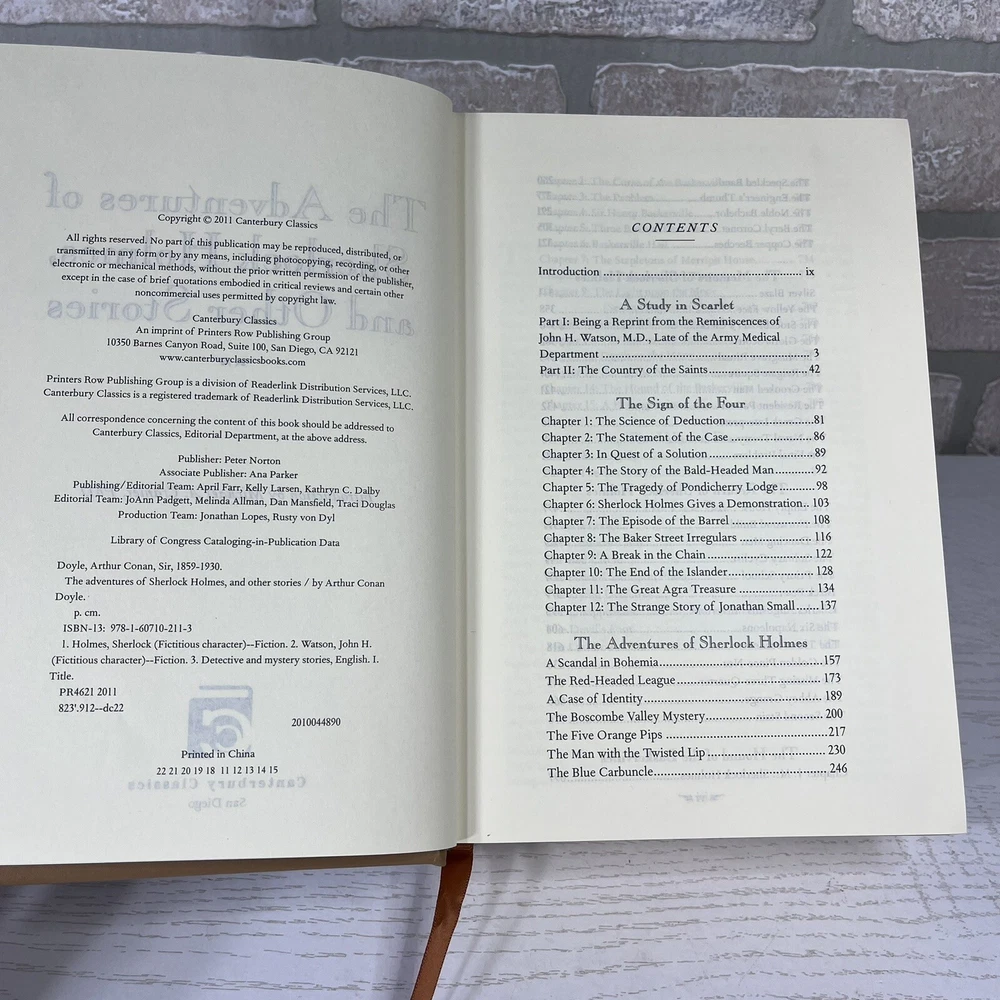 Copyright © 2011 Canterbury Classics
All rights reserved. No part of this publication may be reproduced, distributed, or
transmitted in any form or by any means, including photocopying, recording, or other
electronic or mechanical methods, without the prior written permission of the publisher,
except in the case of brief quotations embodied in critical reviews and certain other
noncommercial uses permitted by copyright law.
Canterbury Classics
An imprint of Printers Row Publishing Group
10350 Barnes Canyon Road, Suite 100, San Diego, CA 92121
www.canterburyclassicsbooks.com
Printers Row Publishing Group is a division of Readerlink Distribution Services, LLC.
Canterbury Classics is a registered trademark of Readerlink Distribution Services, LLC.
All correspondence concerning the content of this book should be addressed to
Canterbury Classics, Editorial Department, at the above address.
Publisher: Peter Norton
Associate Publisher: Ana Parker
Publishing/Editorial Team: April Farr, Kelly Larsen, Kathryn C. Dalby
Editorial Team: JoAnn Padgett, Melinda Allman, Dan Mansfield, Traci Douglas
Production Team: Jonathan Lopes, Rusty von Dyl
Library of Congress Cataloging-in-Publication Data
Doyle, Arthur Conan, Sir, 1859-1930.
The adventures of Sherlock Holmes, and other stories / by Arthur Conan
Doyle.
p. cm.
ISBN-13: 978-1-60710-211-3
1. Holmes, Sherlock (Fictitious character)--Fiction. 2. Watson, John H.
(Fictitious character)--Fiction. 3. Detective and mystery stories, English. I.
Title.
PR4621 2011
823'.912--dc22
2010044890
Printed in China
22 21 20 19 18 11 12 13 14 15
Canterbury Classics
San Diego
CONTENTS
Introduction ... ix
A Study in Scarlet
Part I: Being a Reprint from the Reminiscences of
John H. Watson, M.D., Late of the Army Medical
Department ... 3
Part II: The Country of the Saints ... 42
The Sign of the Four
Chapter 1: The Science of Deduction ... 81
Chapter 2: The Statement of the Case ... 86
Chapter 3: In Quest of a Solution ... 89
Chapter 4: The Story of the Bald-Headed Man ... 92
Chapter 5: The Tragedy of Pondicherry Lodge ... 98
Chapter 6: Sherlock Holmes Gives a Demonstration .. 103
Chapter 7: The Episode of the Barrel ... 108
Chapter 8: The Baker Street Irregulars ... 116
Chapter 9: A Break in the Chain ... 122
Chapter 10: The End of the Islander ... 128
Chapter 11: The Great Agra Treasure ... 134
Chapter 12: The Strange Story of Jonathan Small ... 137
The Adventures of Sherlock Holmes
A Scandal in Bohemia ... 157
The Red-Headed League ... 173
A Case of Identity ... 189
The Boscombe Valley Mystery ... 200
The Five Orange Pips ... 217
The Man with the Twisted Lip ... 230
The Blue Carbuncle ... 246